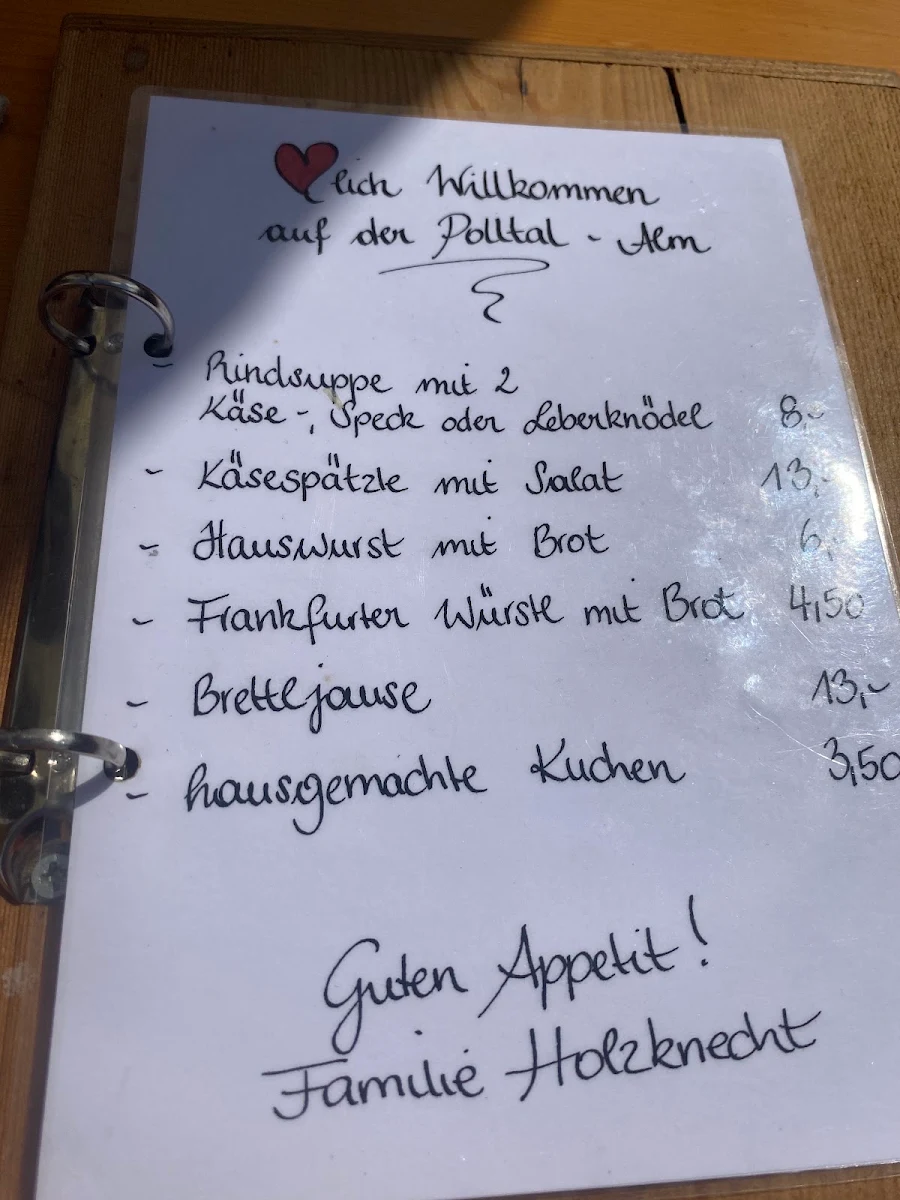 ❤lich Willkommen
auf der Polltal - Alm
- Rindsuppe mit 2
Käse-, Speck oder Leberknödel 8,-
- Käsespätzle mit Salat 13,-
- Hauswurst mit Brot 6,-
- Frankfurter Würstl mit Brot 4,50
- Brettljause 13,-
- hausgemachte Kuchen 3,50
Guten Appetit!
Familie Holzknecht